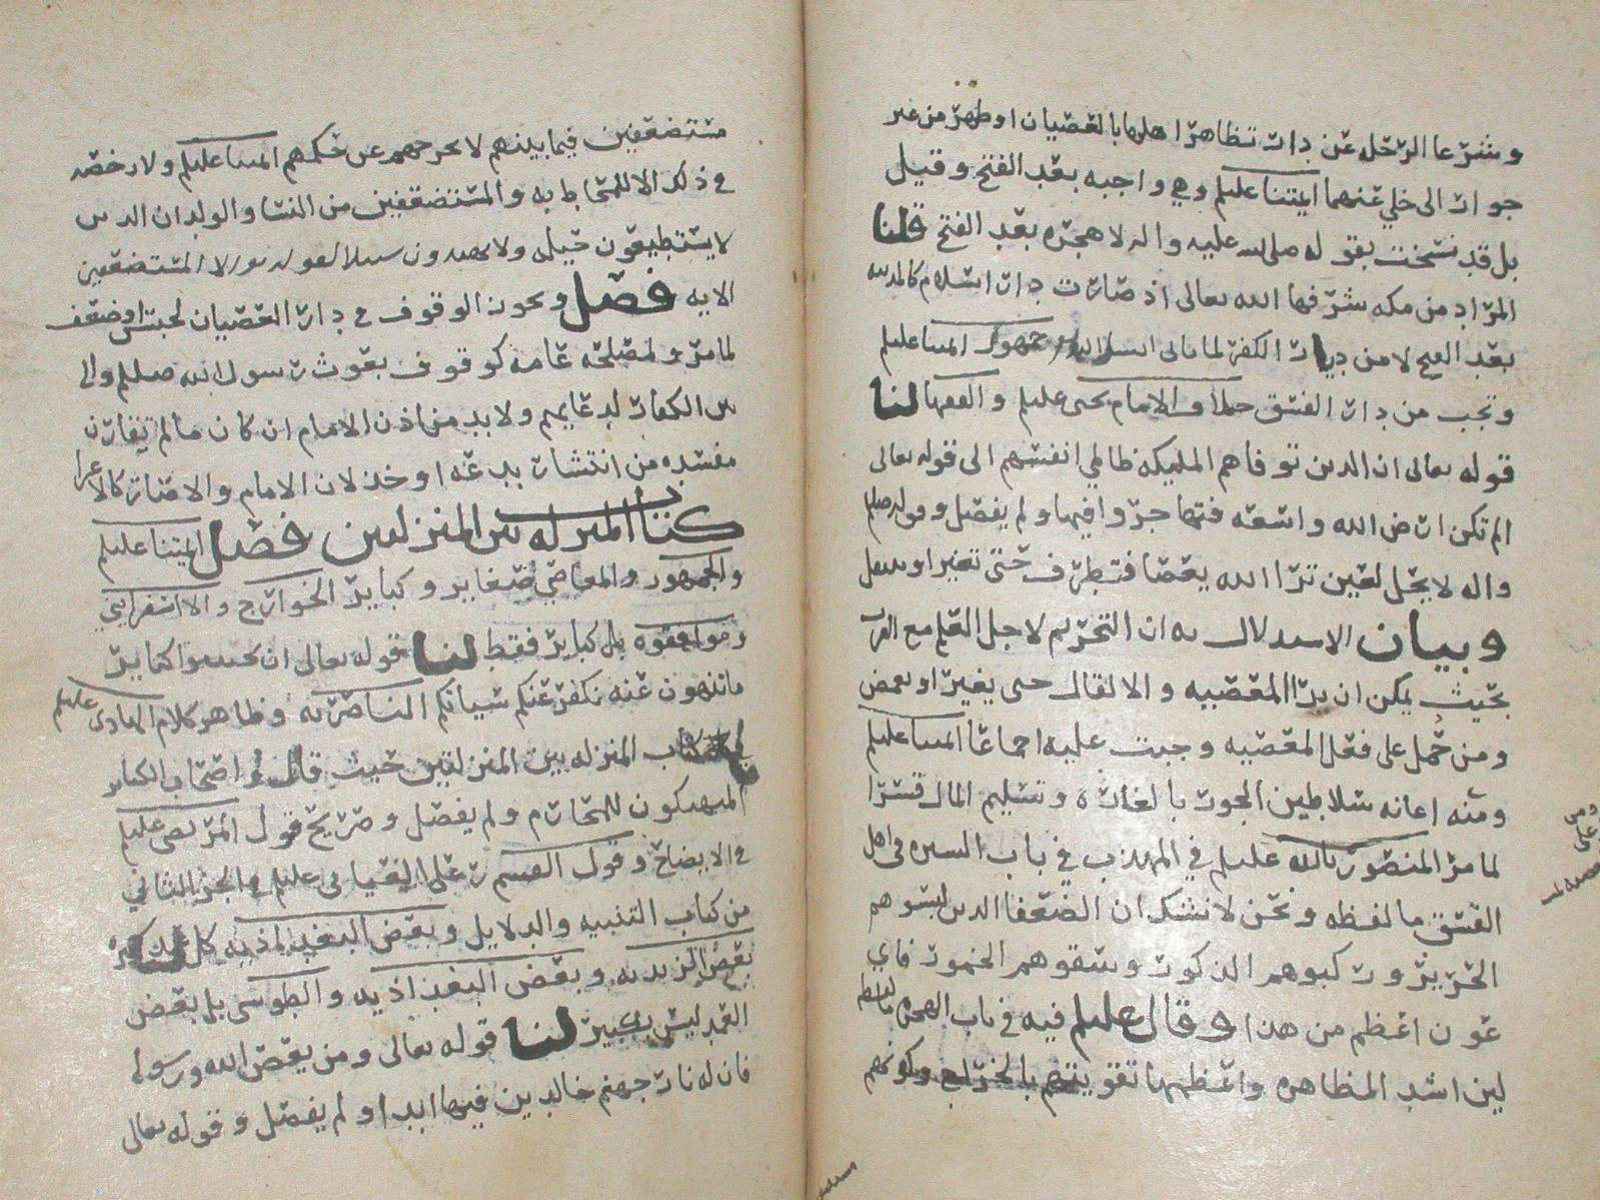 وشرعا الرحله عن دار تظاهر اهلها بالعصيان او ظهر من غير
جوار الى خلي عنهما ائمتنا عليلم وهي واجبه بعد الفتح وقيل
بل قد نسخت بقوله صلى الله عليه واله لا هجره بعد الفتح قلنا
المراد من مكه شرفها الله تعالى اذ صارت دار اسلام كالمدينه
بعد الفتح لا من ديار الكفر لما ياتي ان شا الله جمهور ائمتنا عليلم
وتجب من دار الفسق خلافا للامام يحيى عليلم والفقها لنا
قوله تعالى ان الذين توفاهم الملئكه ظالمي انفسهم الى قوله تعالى
الم تكن ارض الله واسعه فتهاجروا فيها ولم يفصل وقوله صللم
واله لا يحل لعين ترا الله يعصا فتطرف حتى تغير او تنتقل
وبيان الاستدلال به ان التحريم لاجل العلم مع القرب
بحيث يمكن ان يرا المعصيه والا لقال حتى يغير او يغمض
ومن حمل على فعل المعصيه وجبت عليه اجماعا ائمتنا عليلم
ومنه اعانه سلاطين الجور بالغاره وتسليم المال قسرا
لما مر المنصور بالله عليلم في المهذب في باب السيره في اهل
الفسق ما لفظه ونحن لا نشك ان الضعفا الذين لبسوهم
الحرير وركبوهم الذكور وسقوهم الخمور فاي
عون اعظم من هذا وقال عليلم فيه في باب الهجره ما لفظه
لين اشد المظاهره واعظمها تقويتهم بالخراج وكونهم
مستضعفين فيما بينهم لا يخرجهم عن حكمهم ائمتنا عليلم ولا رخصه
في ذلك الا للمخاطب به والمستضعفين من النسا والولدان الذين
لا يستطيعون حيله ولا يهتدون سبيلا لقوله تعالى الا المستضعفين
الايه فصل ويجوز الوقوف في دار العصيان لحبس او ضعف
لما مر ولمصلحه عامه كوقوف بعوث رسول الله صللم والى
من الكفار لدعايهم ولا بد من اذن الامام ان كان ما لم تقارن
مفسده من انتشار بدعه او خذلان الامام والا صار كالاعرا
كتاب المنزله بين المنزلتين فصل ائمتنا عليلم
والجمهور والمعاصي صغاير وكباير الخوارج والاسفرايني
وموافقوه بل كباير فقط لنا قوله تعالى ان تجتنبوا كباير
ما تنهون عنه نكفر عنكم سيئاتكم الناصريه وظاهر كلام الهادي عليلم
كتاب المنزله بين المنزلتين حيث قال واصحاب الكباير
المنهمكون للمحارم ولم يفصل وصريح قول المرتضى عليلم
في الايضاح وقول القسم بن علي العياني عليلم في الجز الثاني
من كتاب التنبيه والدلايل وبعض البغداذيه كل عمد كبيره
بعض الزيديه وبعض البغداذيه والطوسي بل بعض
العمد ليس بكبير لنا قوله تعالى ومن يعص الله ورسوله
فان له نار جهنم خالدين فيها ابدا ولم يفصل وقوله تعالى